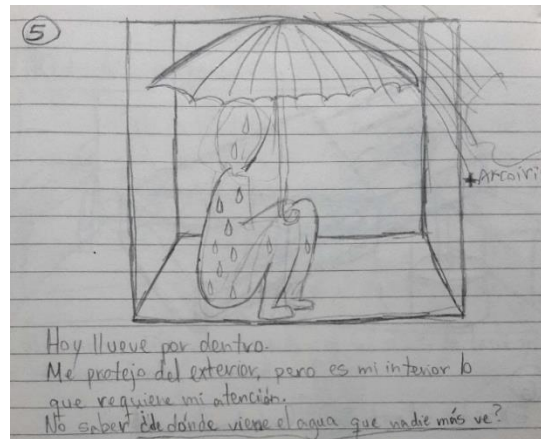 5
+Arcoiri
Hoy llueve por dentro.
Me protejo del exterior, pero es mi interior lo
que requiere mi atención.
No saber ¿de dónde viene el agua que nadie más ve?